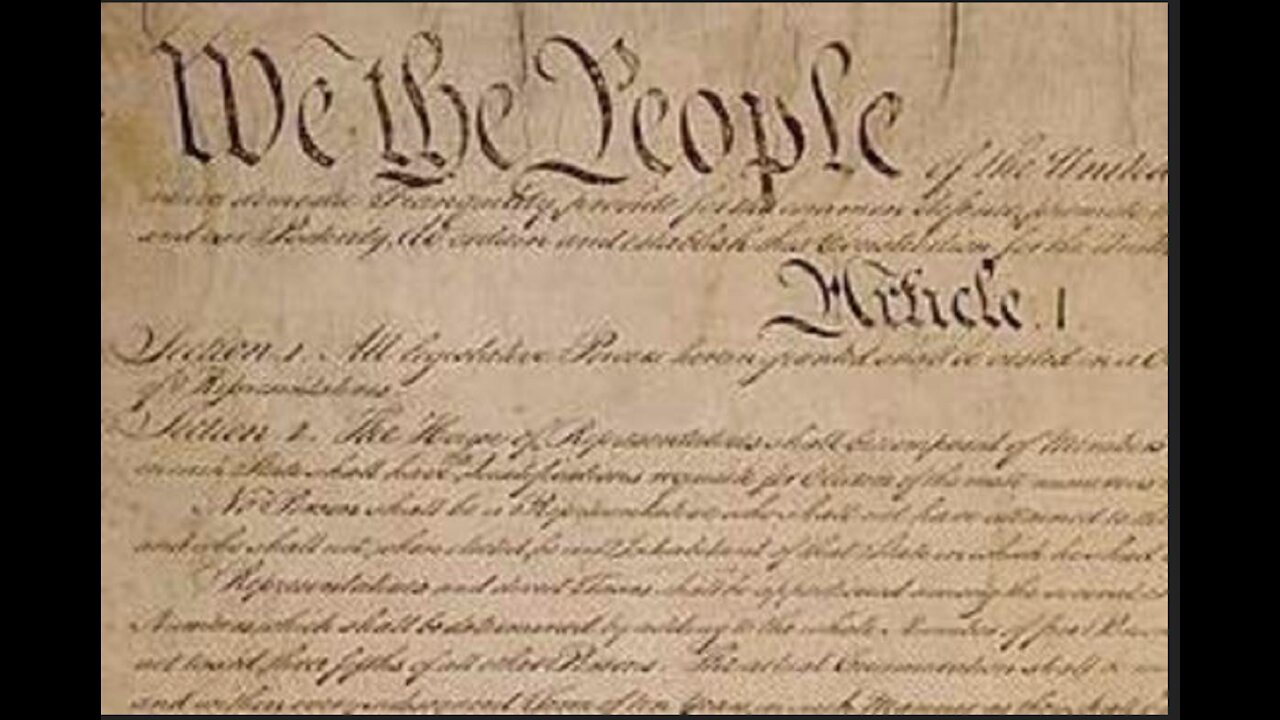 We the People of the United
domestic Tranquility, provide for the common defence, promote
and our Posterity, do ordain and establish this Constitution for the United
Article. I.
Section. 1. All legislative Powers herein granted shall be vested in a C
of Representatives.
Section. 2. The House of Representatives shall be composed of Members
in each State shall have Qualifications requisite for Electors of the most numerous
No Person shall be a Representative who shall not have attained to the
and who shall not, when elected, be an Inhabitant of that State in which he shall
Representatives and direct Taxes shall be apportioned among the several S
Numbers, which shall be determined by adding to the whole Number of free Persons
not taxed, three fifths of all other Persons. The actual Enumeration shall be
and within every subsequent Term of ten Years, in such Manner as they shall